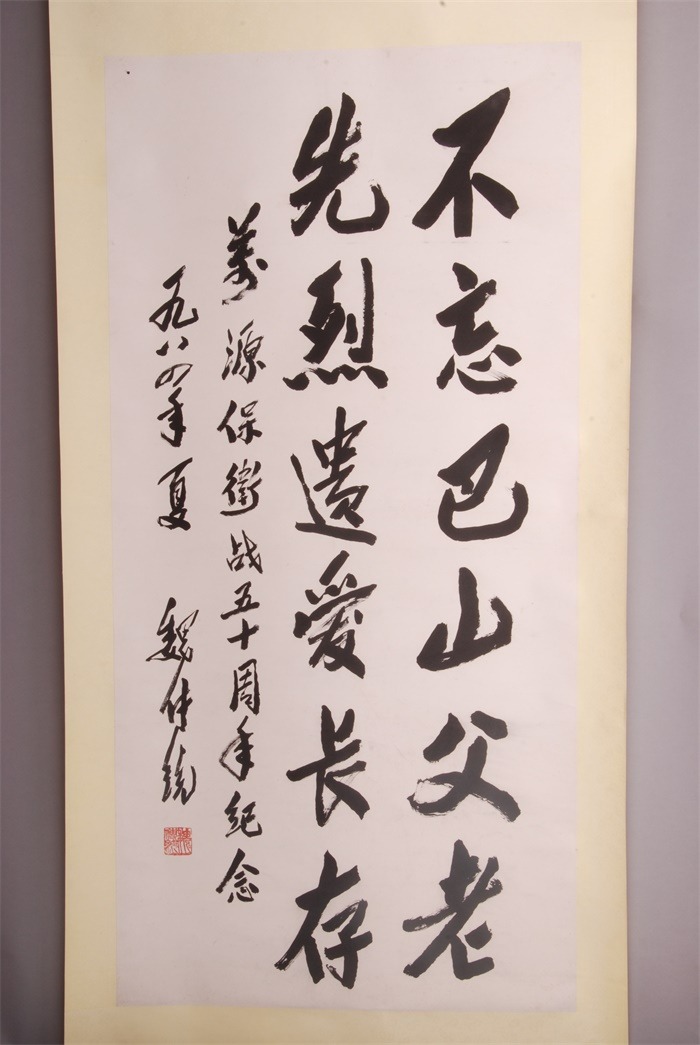 不忘巴山父老
先烈遗爱长存
萬源保衛战五十周年纪念
一九八四年夏 魏传统